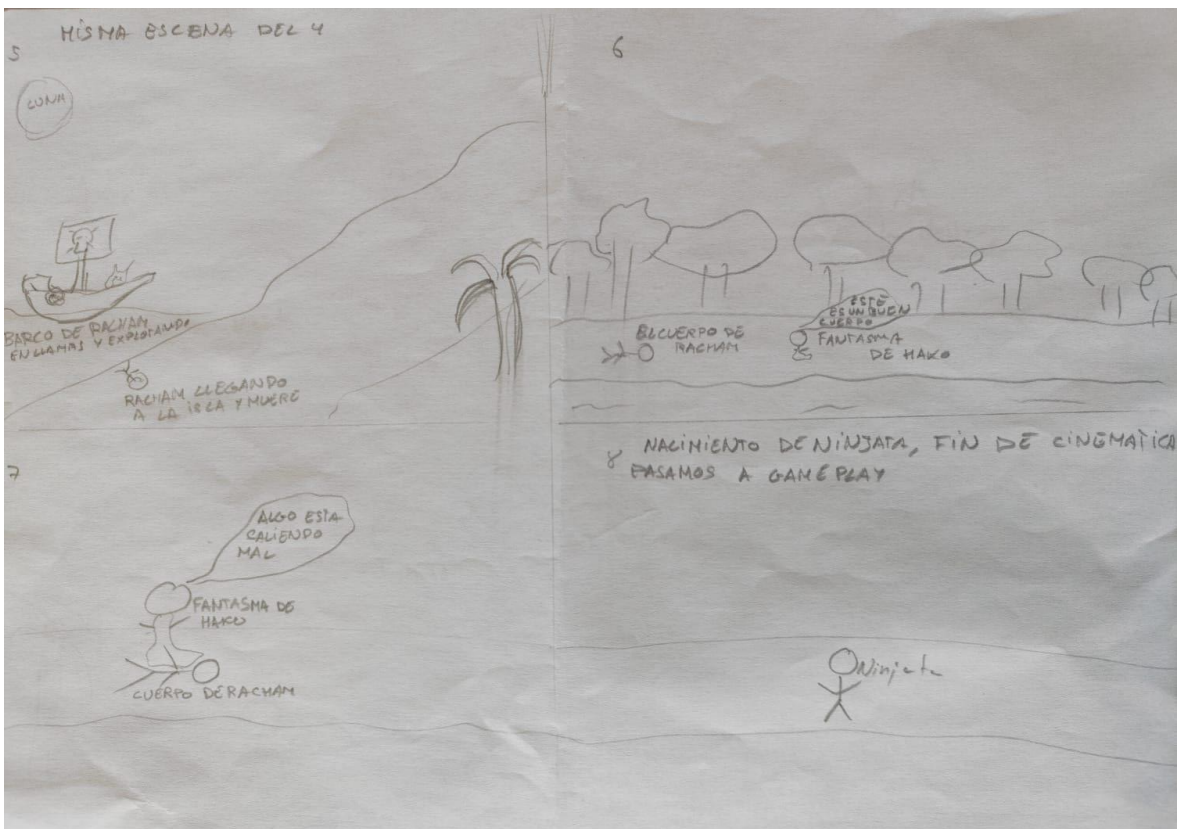 5
MISMA ESCENA DEL 4
LUNA
BARCO DE RACHAM
EN LLAMAS Y EXPLOTANDO
RACHAM LLEGANDO
A LA ISLA Y MUERE
6
ESTE
ES UN BUEN
CUERPO
EL CUERPO DE
RACHAM
FANTASMA
DE HAKO
7
ALGO ESTA
CALIENDO
MAL
FANTASMA DE
HAKO
CUERPO DE RACHAM
8 NACIMIENTO DE NINJATA, FIN DE CINEMATICA
PASAMOS A GAMEPLAY
Ninjata